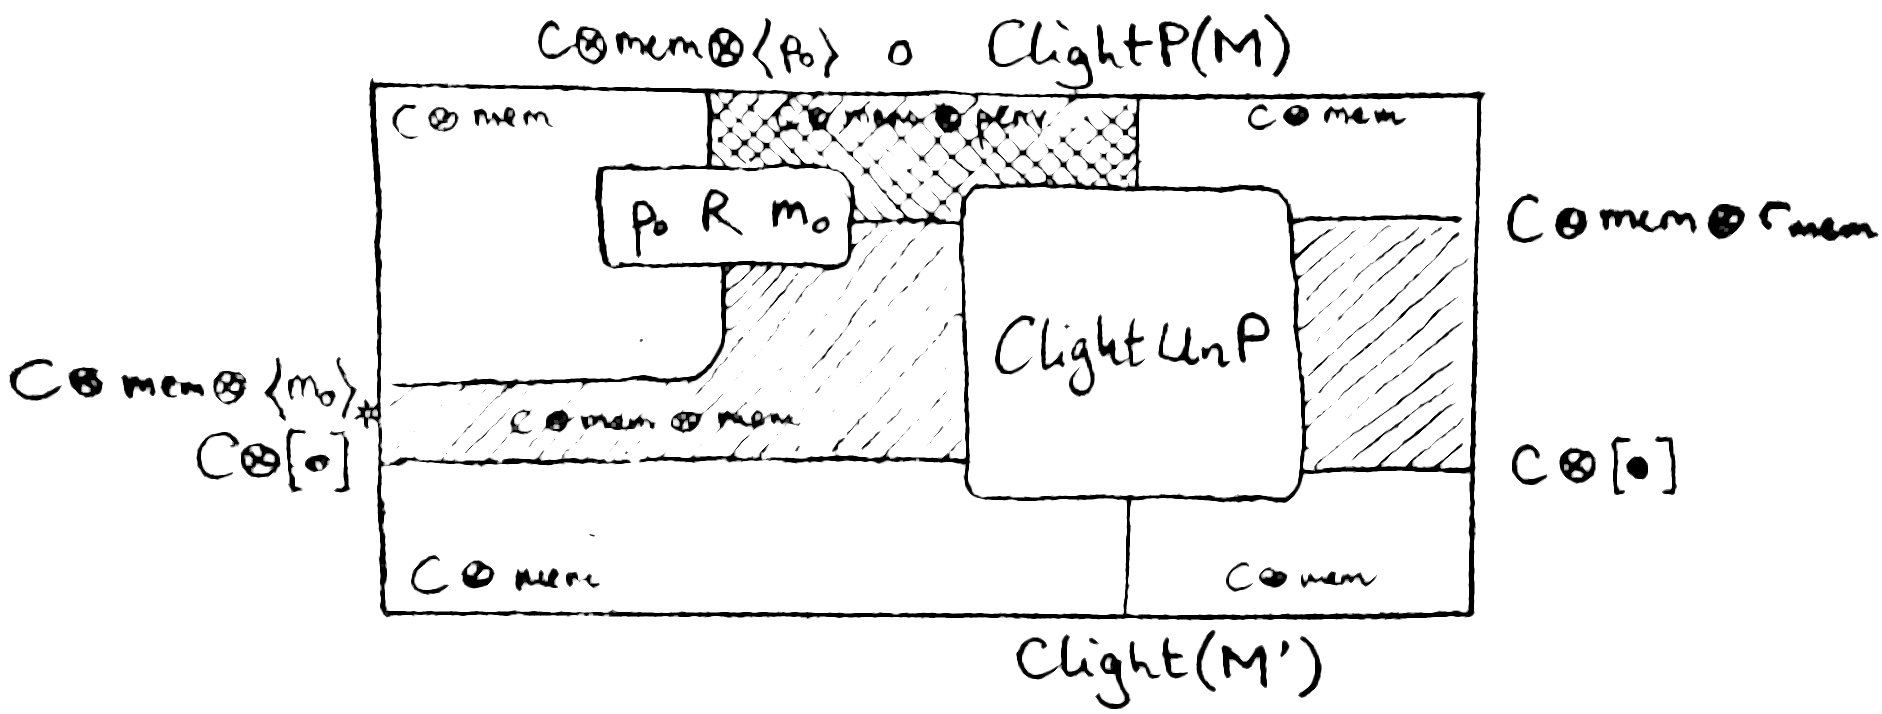 C⊗mem⊗⟨p₀⟩ ∘ ClightP(M)
C⊗mem C⊗mem⊗penv C⊗mem
p₀ R m₀
C⊗mem⊗rmem
ClightUnP
C⊗mem⊗⟨m₀⟩*
C⊗mem⊗mem
C⊗[•] C⊗[•]
C⊗mem C⊗mem
Clight(M')